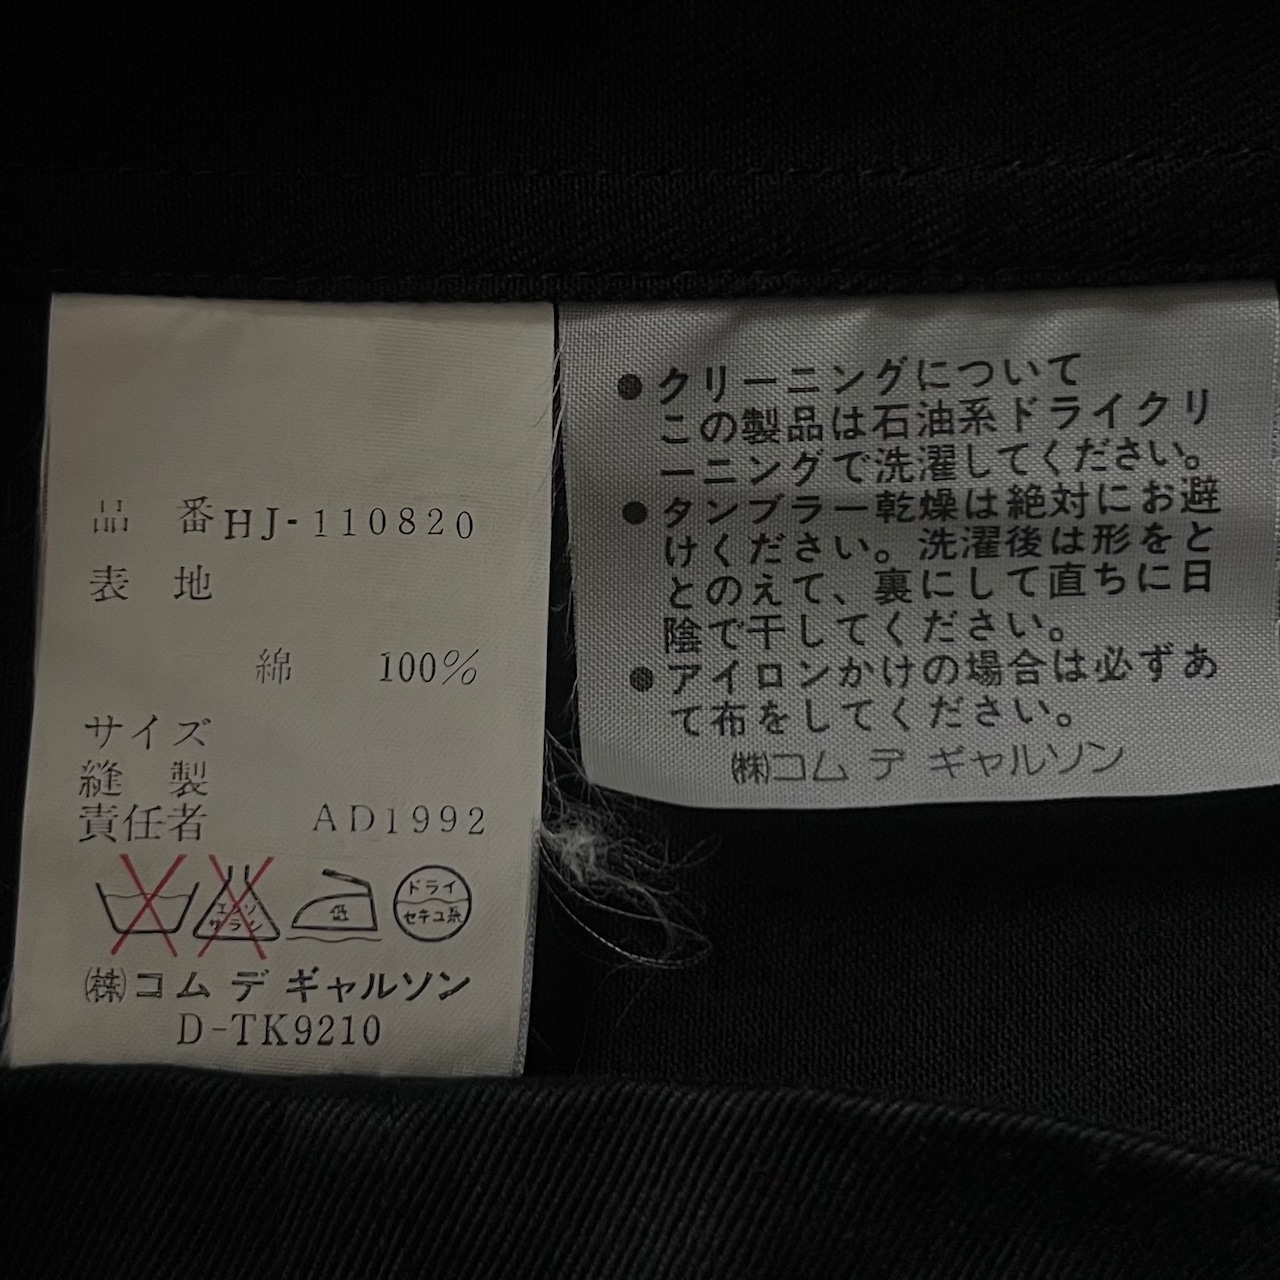 品 番 HJ-110820
表 地
綿 100%
サイズ
縫 製
責任者 AD1992
エンソ
サラシ
低
ドライ
セキユ系
㈱コム デ ギャルソン
D-TK9210
●クリーニングについて
この製品は石油系ドライクリ
ーニングで洗濯してください。
●タンブラー乾燥は絶対にお避
けください。洗濯後は形をと
とのえて、裏にして直ちに日
陰で干してください。
●アイロンかけの場合は必ずあ
て布をしてください。
㈱コム デ ギャルソン